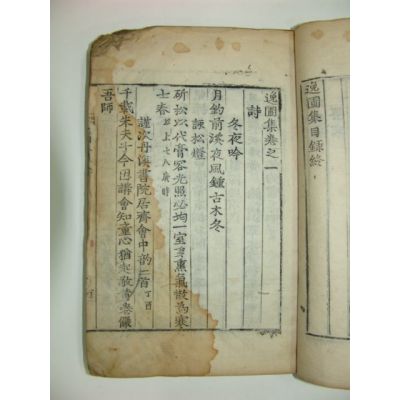 逸圃集目錄終
逸圃集卷之一
詩
冬夜吟
月釣前溪夜風鍾古木冬
詠松燈
斫松以代膏容光照必均一室夛熏氣散爲寒
士春 上七八歲時
謹次丹 書院居齋會中韵二首 丁酉
千載朱夫子今因講會知童心猶起敬 卷儼
吾師